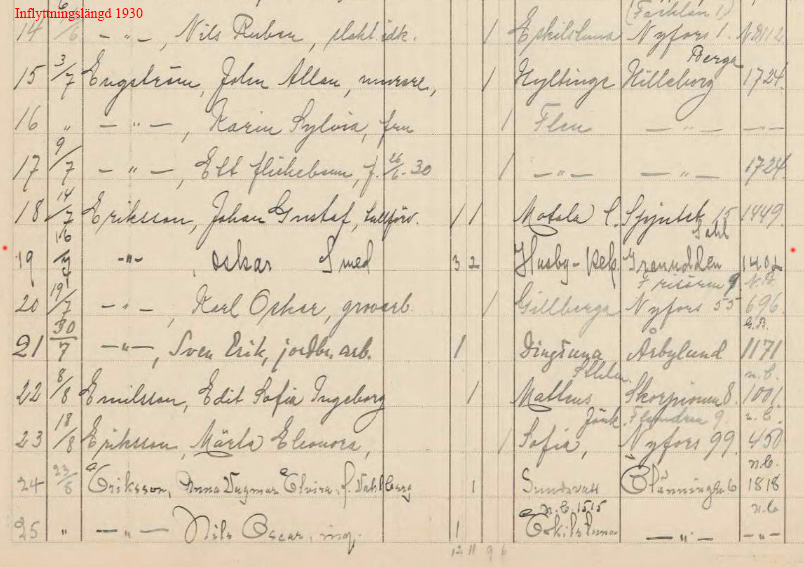 Inflyttningslängd 1930
(Farklan 1)
14 /6 — „ —, Nils Ruben, slakt.idk. 1 Eskilstuna Nyfors 1. N.B. 112
Berga
15 3/7 Engström, John Allan, murare, 1 Hyltinge Hilleborg 1724.
16 „ — „ —, Karin Sylvia, fru 1 Flen — „ — — „ —
17 9/7 — „ —, Ett flickebarn, f. 26/6 -30 1 — „ — — „ — 1724.
18 14/7 Eriksson, Johan Gustaf, 1 1 Motala 15 1449.
19 16/7 — „ —, Oskar Smed 3 2 Husby-Rek. 1401
Frisören 9 N.B.
20 19/7 — „ —, Karl Oskar, grovarb. 1 Gillberga Nyfors 55 696
21 30/7 — „ —, Sven Erik, jordbr.arb. 1 Dingtuna Åsbylund 1171
n.b.
22 8/8 Emilsson, Edit Sofia Ingeborg 1 Matteus Skorpionen 8. 1001
Jönk. 9. n.b.
23 18/8 Eriksson, Märta Eleonora, 1 Sofia, Nyfors 99. 450
n.b.
24 23/8 Eriksson, Anna Dagmar Elvira, f. Dahlberg 1 Sundsvall 6 1818
n.b. 1515 n.b.
25 „ — „ — Nils Oscar, ing. 1 Eskilstuna — „ — — „ —
12 11 9 6